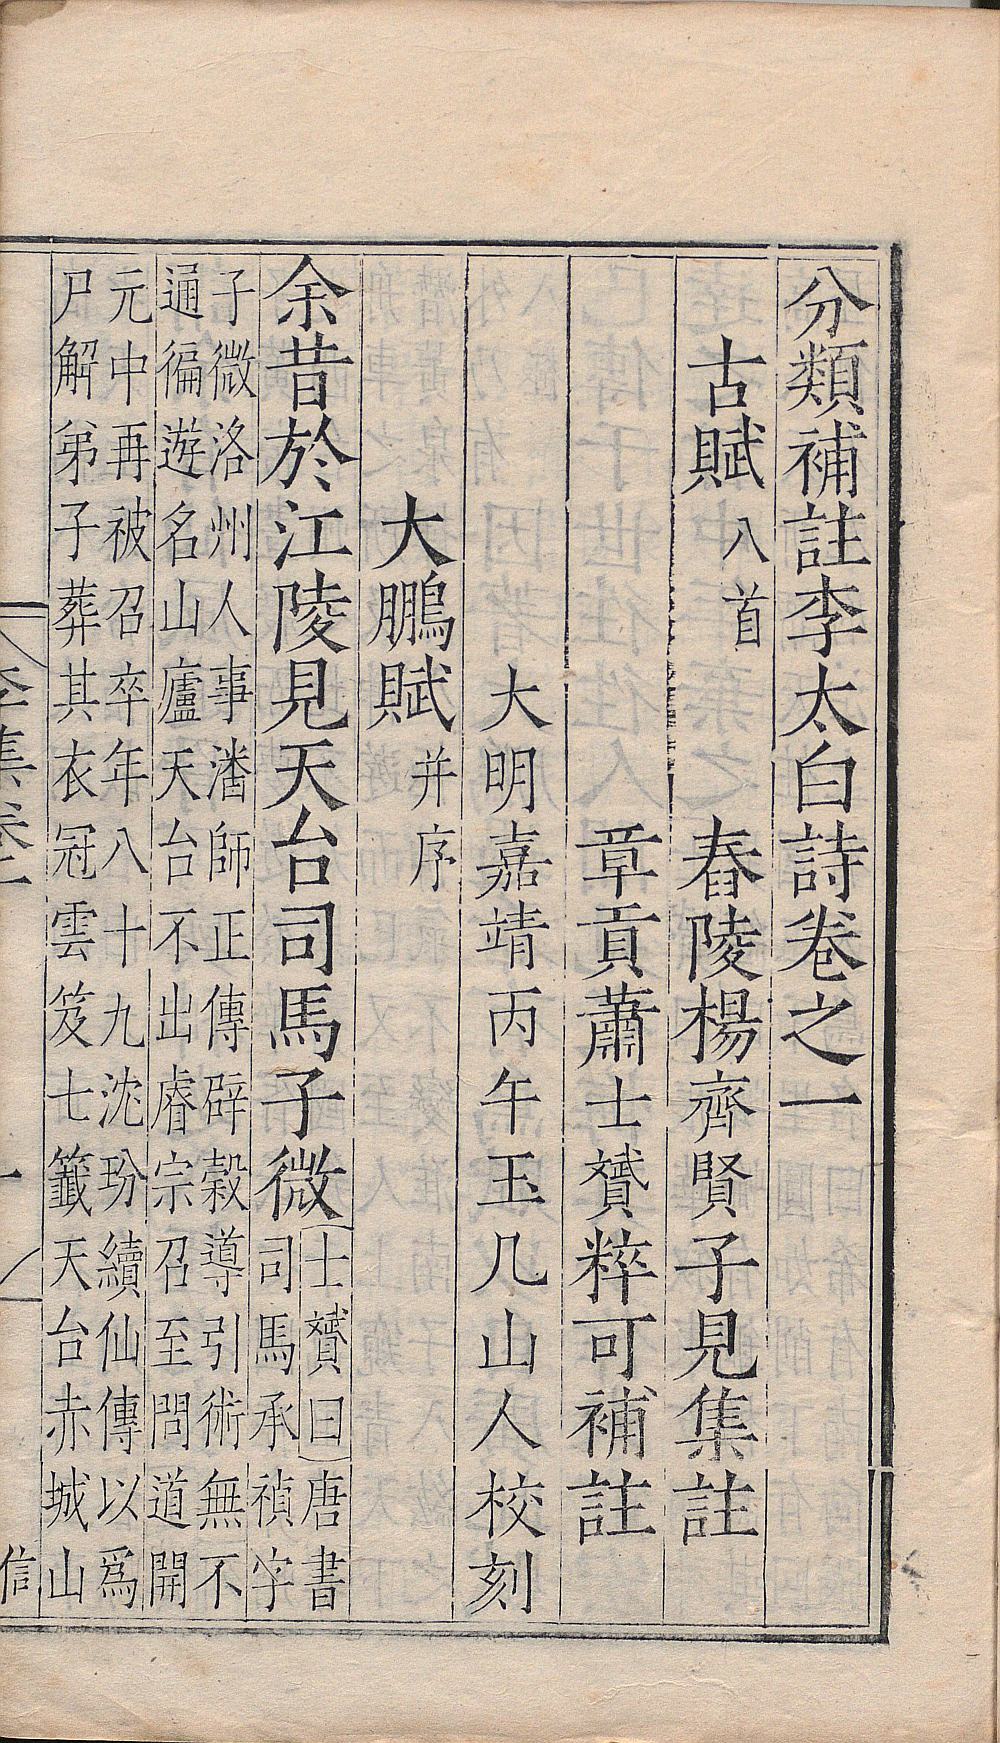 分類補註李太白詩卷之一
古賦八首 舂陵楊齊賢子見集註
章貢蕭士贇粹可補註
大明嘉靖丙午玉几山人校刻
大鵬賦并序
余昔於江陵見天台司馬子微
士贇曰唐書
司馬承禎字
子微洛州人事潘師正傳辟穀導引術無不
通徧遊名山廬天台不出睿宗召至問道開
元中再被召卒年八十九沈玢續仙傳以爲
尸解弟子葬其衣冠雲笈七籤天台赤城山
李集卷一 一
信